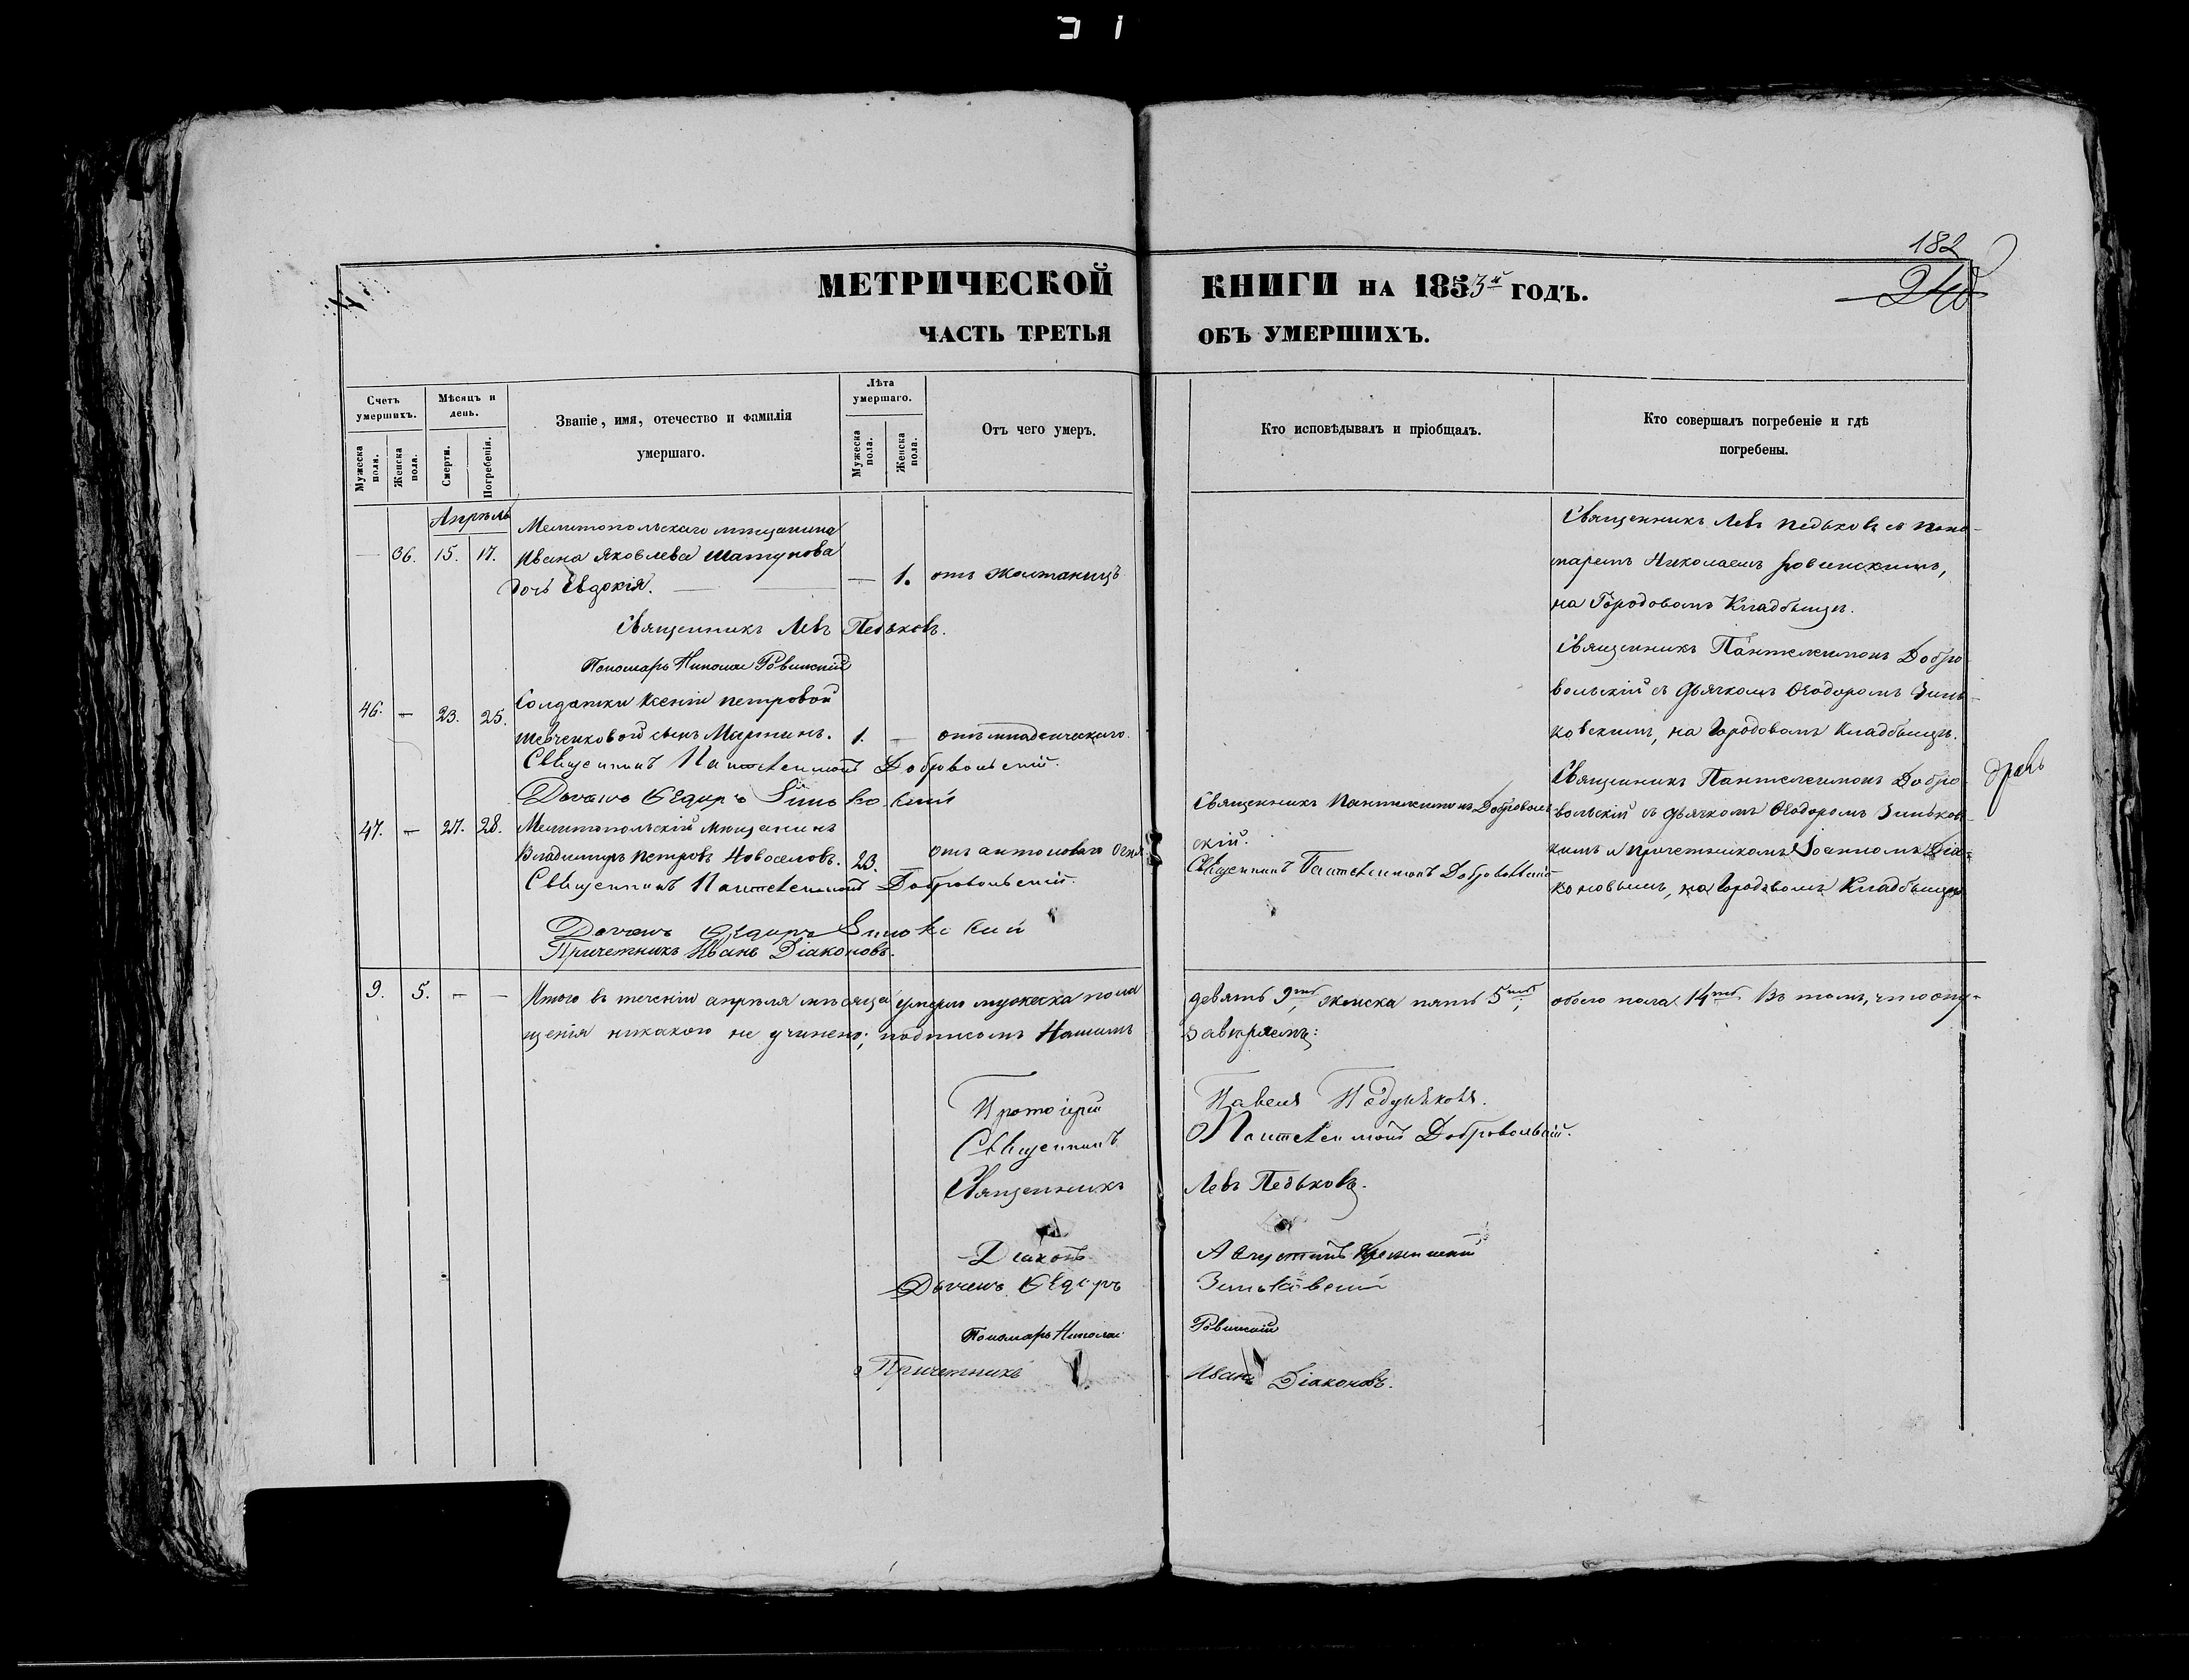 182
240
МЕТРИЧЕСКОЙ КНИГИ НА 1853й ГОДЪ.
ЧАСТЬ ТРЕТЬЯ ОБЪ УМЕРШИХЪ.
Счетъ умершихъ.
Мужеска пола.
Женска пола.
Мѣсяцъ и день.
Смерти.
Погребенія.
Званіе, имя, отечество и фамилія
умершаго.
Лѣта умершаго.
Мужеска пола.
Женска пола.
Отъ чего умеръ.
Кто исповѣдывалъ и пріобщалъ.
Кто совершалъ погребеніе и гдѣ
погребены.
Апрѣль
— 36. 15. 17.
Мелитопольскаго мѣщанина
Ивана Яковлева
дочь Евдокія. — 1. отъ
Священникъ Левъ Педьковъ съ поно-
маремъ Николаемъ Ровинскимъ,
на Городовомъ Кладбищѣ.
Священникъ Левъ Педьковъ.
Пономарь Николай Ровинскій
46. — 23. 25.
Солдатки Ксеніи Петровой
Шевченковой сынъ Мартинъ. 1. — отъ младенческаго.
Священникъ Пантелеимонъ Добро-
вольскій съ дьячкомъ Ѳеодоромъ Зинь-
ковскимъ, на Городовомъ Кладбищѣ.
Священникъ Пантелеимонъ Добровольскій.
Дьячекъ Ѳедоръ Зиньковскій
47. — 27. 28.
Мелитопольскій мѣщанинъ
Владимиръ Петровъ Новоселовъ. 23. — отъ антонова огня
Священникъ Пантелеимонъ Доброволь-
скій.
Священникъ Пантелеимонъ Добровольскій
Священникъ Пантелеимонъ Добро-
вольскій съ дьячкомъ Ѳеодоромъ Зиньковс-
кимъ и причетникомъ Іоанномъ Діа-
коновымъ, на Городовомъ Кладбищѣ
Священникъ Пантелеимонъ Добровольскій.
Дьячекъ Ѳедоръ Зиньковскій
Причетникъ Иванъ Діаконовъ.
9. 5. — —
Итого въ теченіи апрѣля мѣсяца умерло мужеска пола девять 9ть, женска пять 5ть, обоего пола 14ть. Въ томъ, что опу-
щенія никакого не учинено; подписомъ Нашимъ завѣряемъ:
Протоіерей Павелъ
Священникъ Пантелеимонъ Добровольскій.
Священникъ Левъ Педьковъ.
Діаконъ Августинъ
Дьячекъ Ѳедоръ Зиньковскій
Пономарь Николай Ровинскій
Причетникъ Иванъ Діаконовъ.